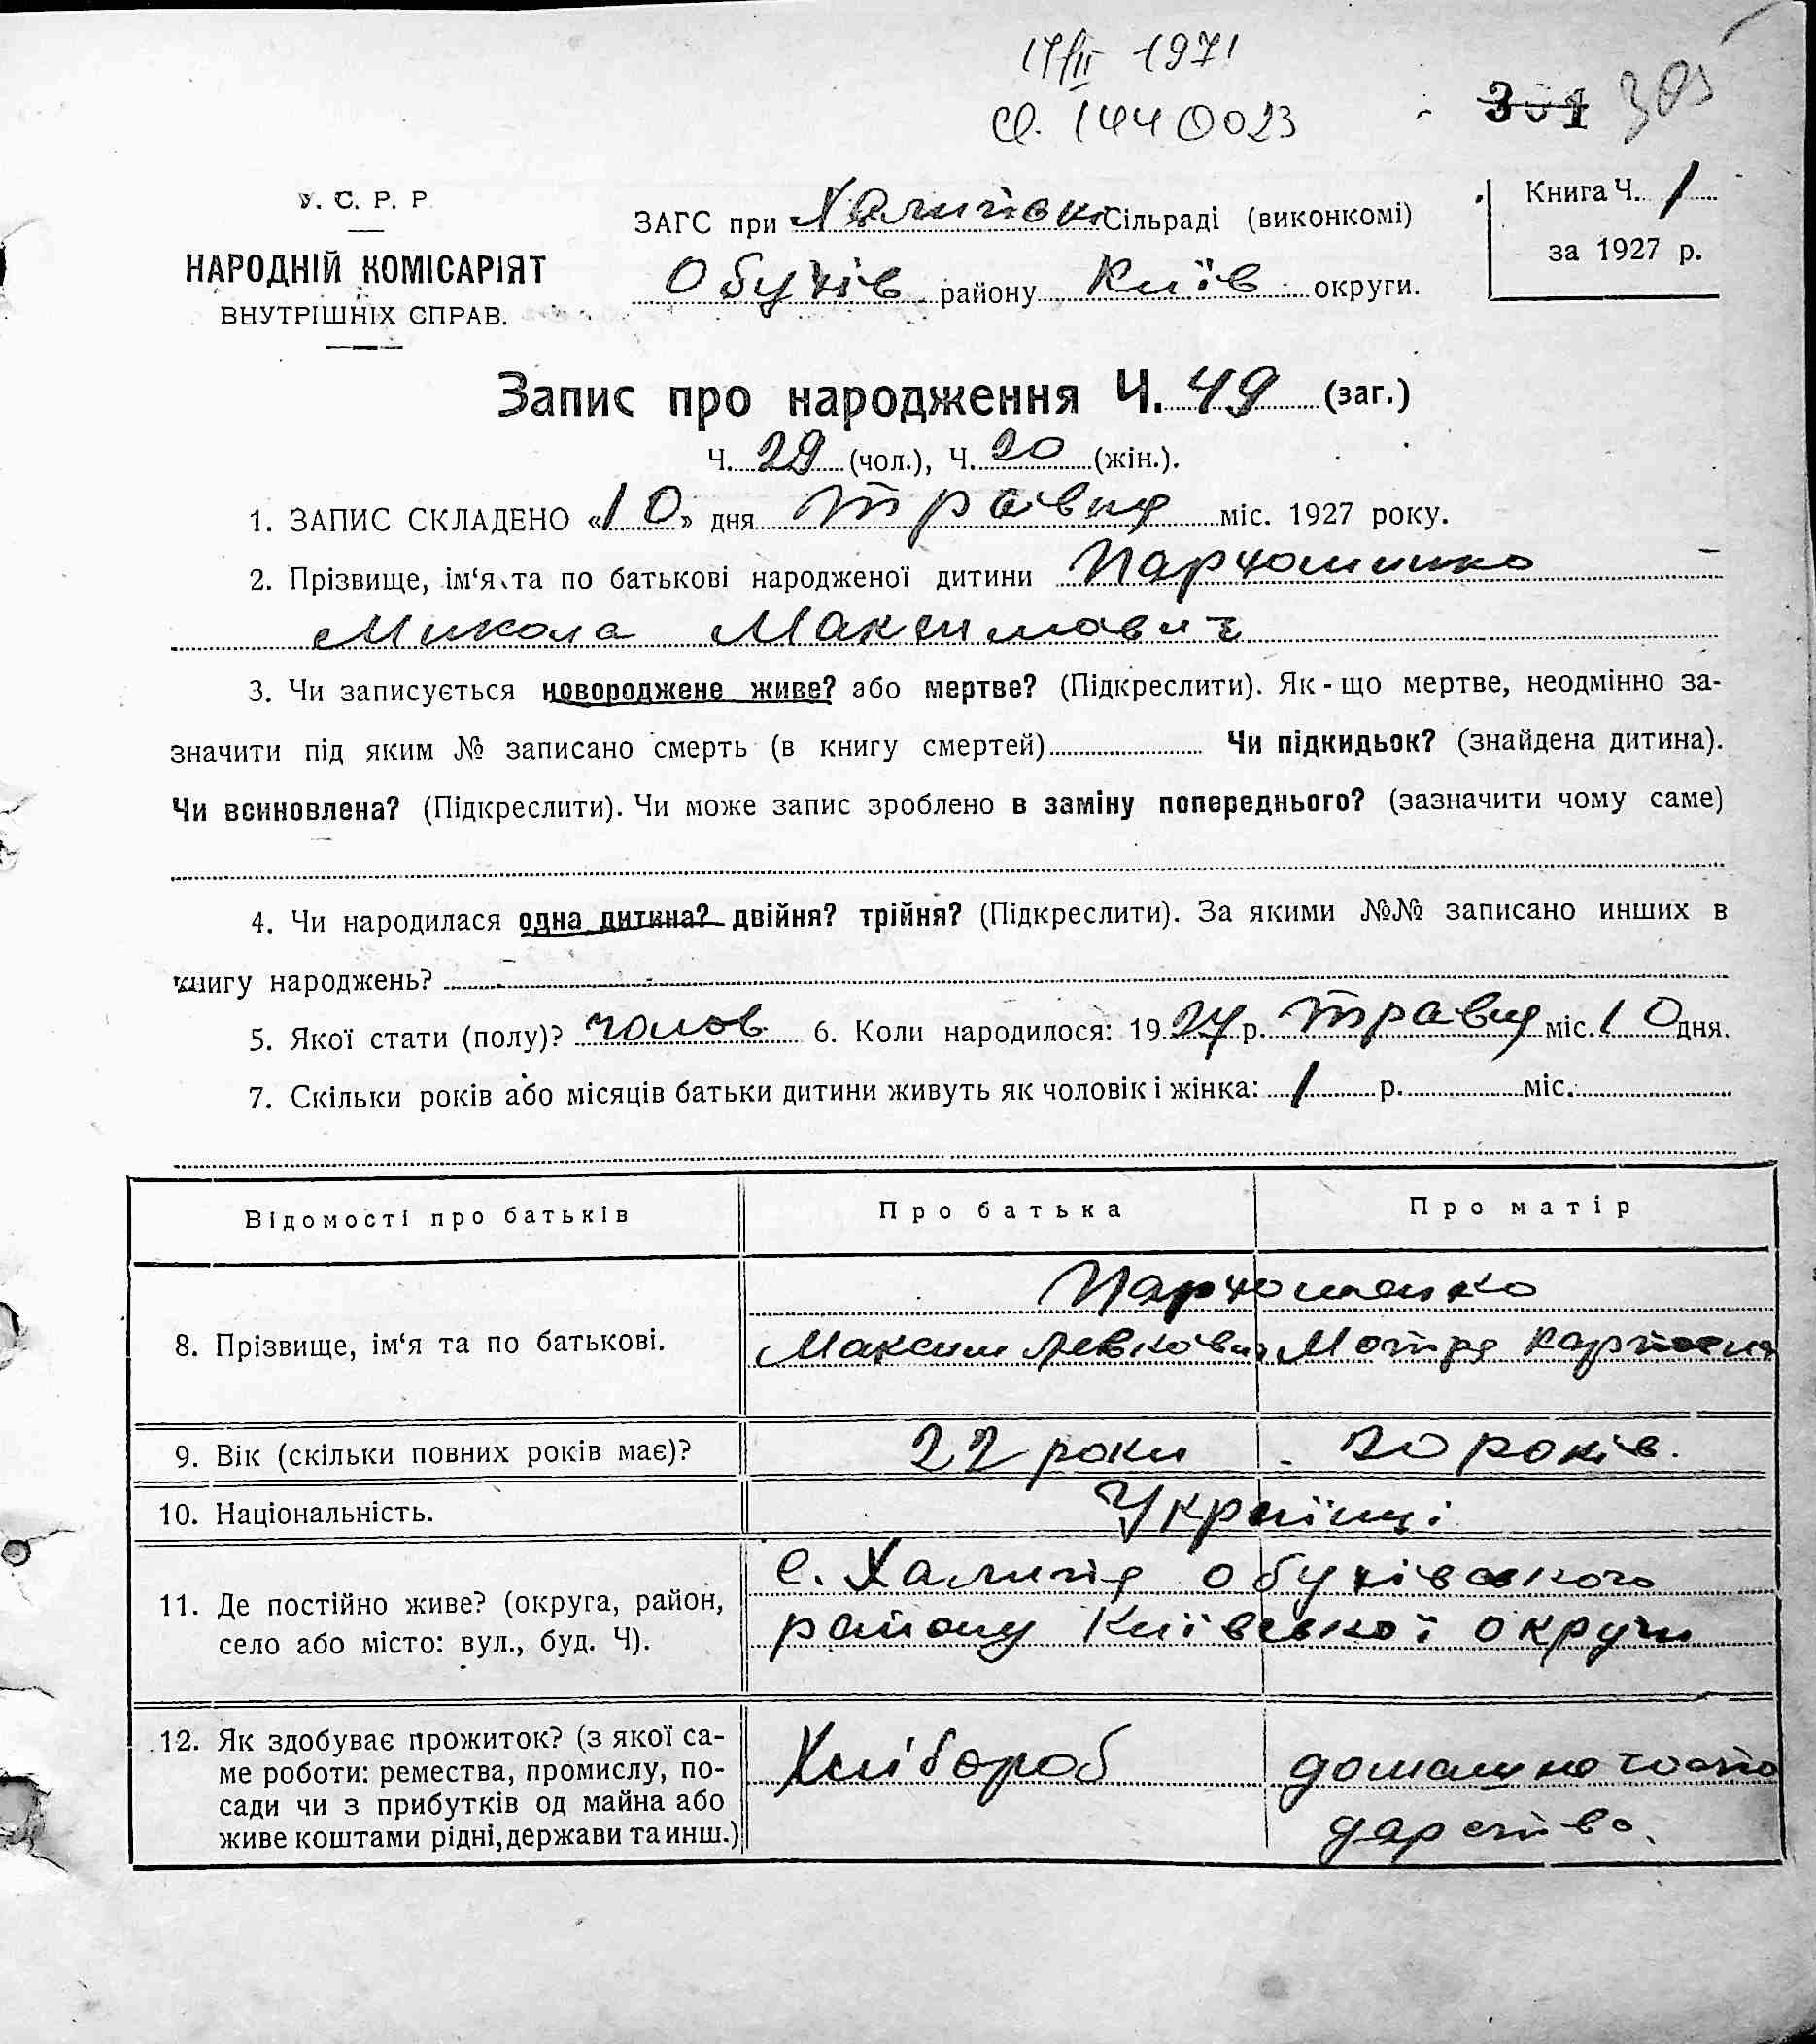 17/II 1971
301
У. С. Р. Р
НАРОДНІЙ КОМІСАРІЯТ
ВНУТРІШНІХ СПРАВ.
ЗАГС при Халипівк Сільраді (виконкомі)
Обухів району Київ округи.
Книга Ч. 1
за 1927 р.
Запис про народження Ч. 49 (заг.)
Ч. 29 (чол.), Ч. 20 (жін.).
1. ЗАПИС СКЛАДЕНО «10» дня травня міс. 1927 року.
2. Прізвище, ім‘я та по батькові народженої дитини Пархоменко
Микола Максимович
3. Чи записується новороджене живе? або мертве? (Підкреслити). Як-що мертве, неодмінно за-
значити під яким № записано смерть (в книгу смертей) Чи підкидьок? (знайдена дитина).
Чи всиновлена? (Підкреслити). Чи може запис зроблено в заміну попереднього? (зазначити чому саме)
4. Чи народилася одна дитина? двійня? трійня? (Підкреслити). За якими №№ записано инших в
книгу народжень?
5. Якої стати (полу)? чолов 6. Коли народилося: 1927 р. травня міс. 10 дня.
7. Скільки років або місяців батьки дитини живуть як чоловік і жінка: 1 р. міс.
Відомості про батьків Про батька Про матір
Пархоменко
8. Прізвище, ім‘я та по батькові. Максим Левкович Мотря Карповна
9. Вік (скільки повних років має)? 22 роки 20 років.
10. Національність. Українці
с. Халипія Обухівського
11. Де постійно живе? (округа, район,
району Київської округи
село або місто: вул., буд. Ч).
12. Як здобуває прожиток? (з якої са-
ме роботи: ремества, промислу, по- Хлібороб домашнє госпо
сади чи з прибутків од майна або
живе коштами рідні, держави та инш.) дарство.